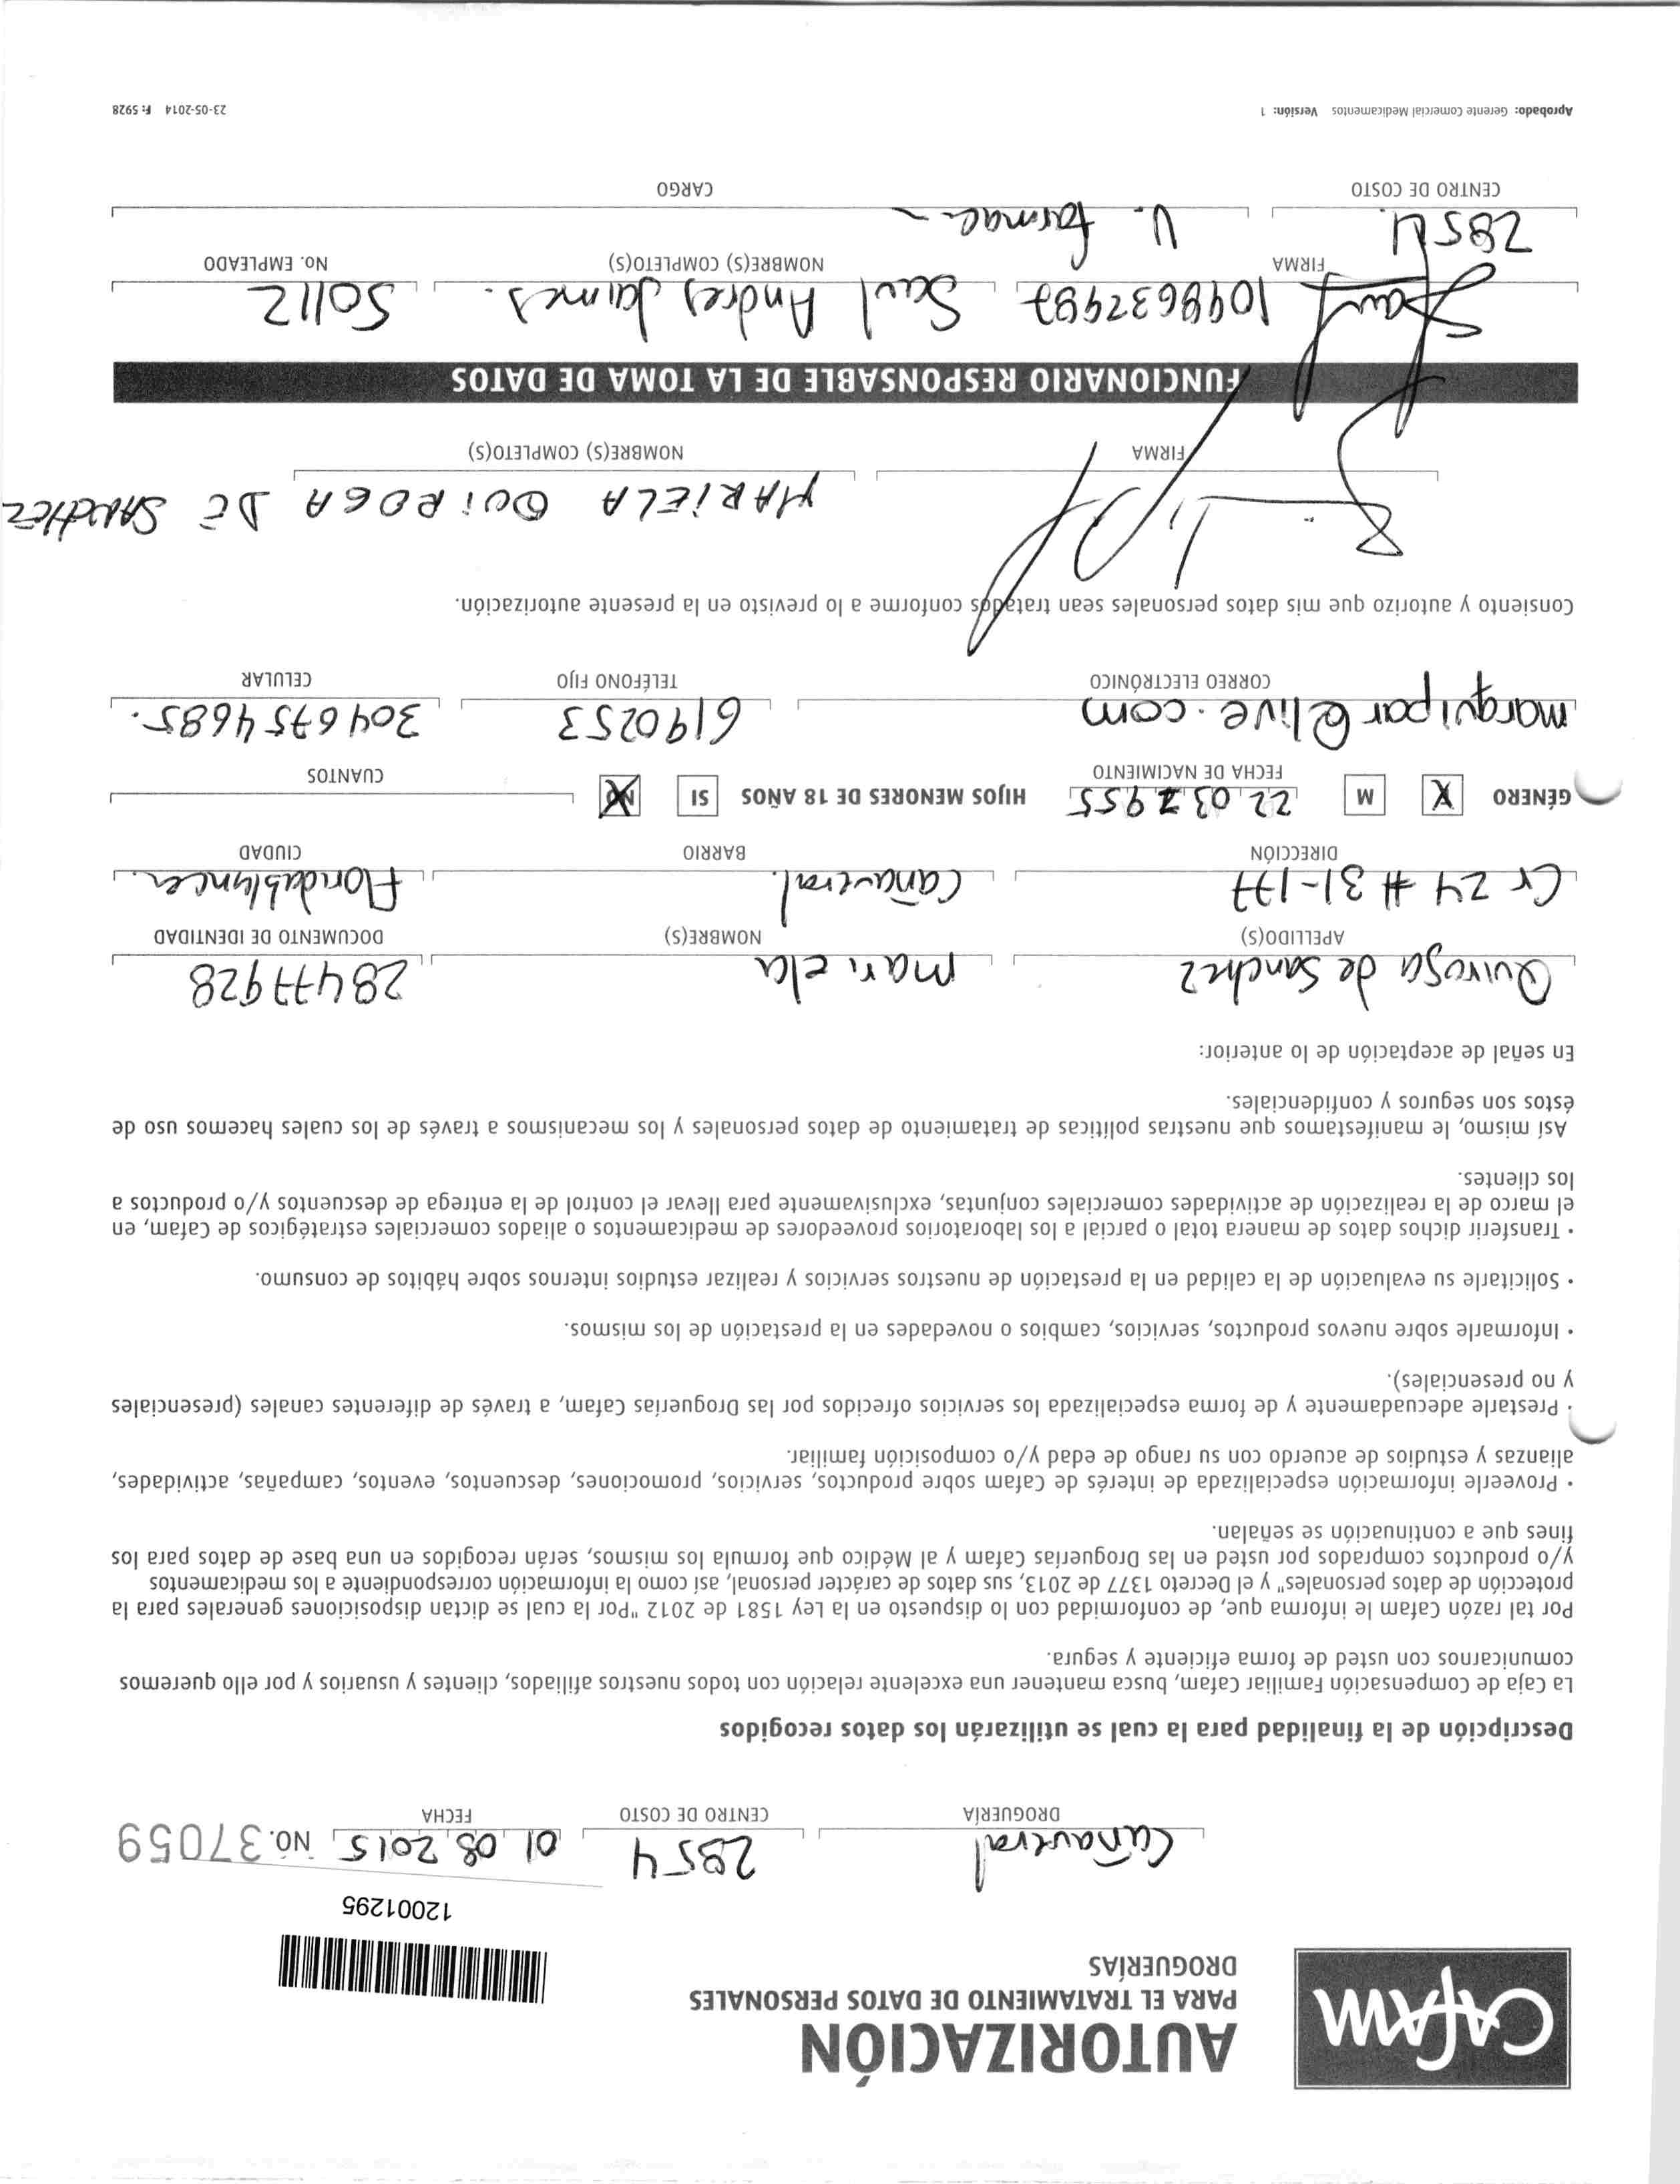 CAFAM
AUTORIZACIÓN
PARA EL TRATAMIENTO DE DATOS PERSONALES
DROGUERÍAS
12001295
Cañaveral 2854 01 08 2015 NO. 37059
DROGUERÍA CENTRO DE COSTO FECHA
Descripción de la finalidad para la cual se utilizarán los datos recogidos
La Caja de Compensación Familiar Cafam, busca mantener una excelente relación con todos nuestros afiliados, clientes y usuarios y por ello queremos
comunicarnos con usted de forma eficiente y segura.
Por tal razón Cafam le informa que, de conformidad con lo dispuesto en la Ley 1581 de 2012 "Por la cual se dictan disposiciones generales para la
protección de datos personales" y el Decreto 1377 de 2013, sus datos de carácter personal, así como la información correspondiente a los medicamentos
y/o productos comprados por usted en las Droguerías Cafam y al Médico que formula los mismos, serán recogidos en una base de datos para los
fines que a continuación se señalan.
• Proveerle información especializada de interés de Cafam sobre productos, servicios, promociones, descuentos, eventos, campañas, actividades,
alianzas y estudios de acuerdo con su rango de edad y/o composición familiar.
• Prestarle adecuadamente y de forma especializada los servicios ofrecidos por las Droguerías Cafam, a través de diferentes canales (presenciales
y no presenciales).
• Informarle sobre nuevos productos, servicios, cambios o novedades en la prestación de los mismos.
• Solicitarle su evaluación de la calidad en la prestación de nuestros servicios y realizar estudios internos sobre hábitos de consumo.
• Transferir dichos datos de manera total o parcial a los laboratorios proveedores de medicamentos o aliados comerciales estratégicos de Cafam, en
el marco de la realización de actividades comerciales conjuntas, exclusivamente para llevar el control de la entrega de descuentos y/o productos a
los clientes.
Así mismo, le manifestamos que nuestras políticas de tratamiento de datos personales y los mecanismos a través de los cuales hacemos uso de
éstos son seguros y confidenciales.
En señal de aceptación de lo anterior:
Quiroga de Sanchez mariela 28477928
APELLIDO(S) NOMBRE(S) DOCUMENTO DE IDENTIDAD
Cr 24 # 31-177 Cañaveral. Floridablanca
DIRECCIÓN BARRIO CIUDAD
GÉNERO X M 22 03 1955 HIJOS MENORES DE 18 AÑOS SI NO
FECHA DE NACIMIENTO CUANTOS
marquipar@live.com 6190253 3046754685.
CORREO ELECTRÓNICO TELÉFONO FIJO CELULAR
Consiento y autorizo que mis datos personales sean tratados conforme a lo previsto en la presente autorización.
MARIELA QUIROGA DE SANCHEZ
FIRMA NOMBRE(S) COMPLETO(S)
FUNCIONARIO RESPONSABLE DE LA TOMA DE DATOS
1098632497 Saul Andres Jaimes. 50112
FIRMA NOMBRE(S) COMPLETO(S) No. EMPLEADO
2854. V. farmac
CENTRO DE COSTO CARGO
Aprobado: Gerente Comercial Medicamentos Versión: 1 23-05-2014 F: 5928